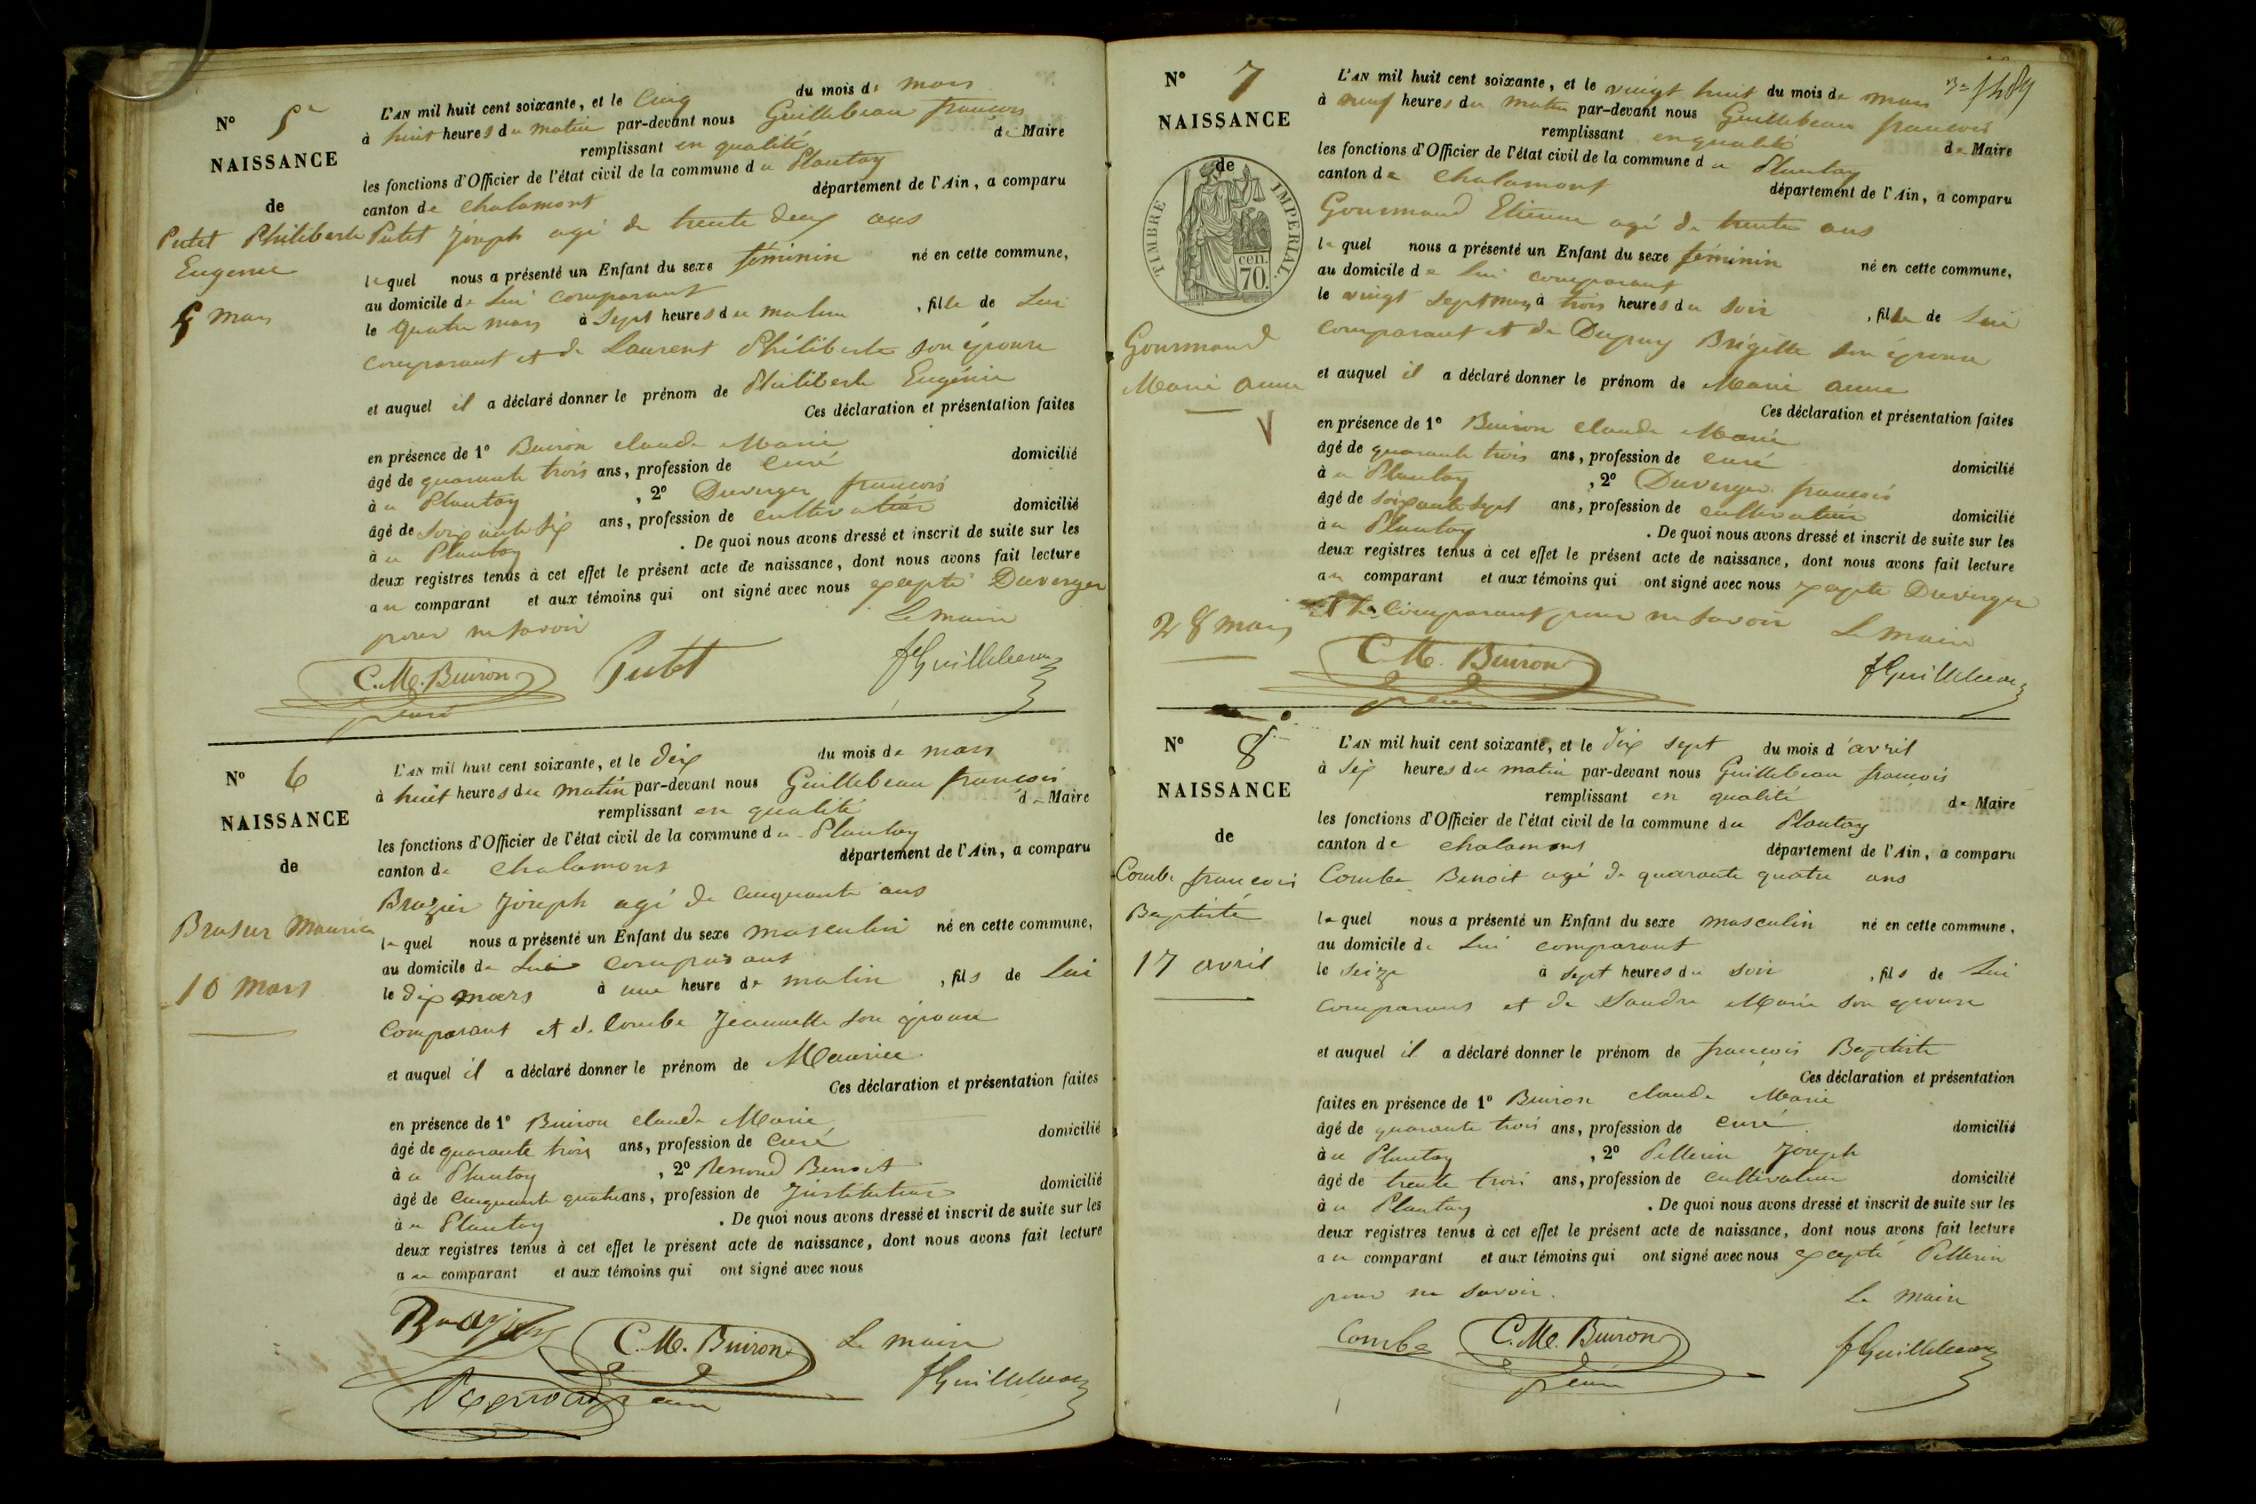 N° 5
NAISSANCE
de
Putet Philiberte
Eugenie
5 mars
L'AN mil huit cent soixante, et le cinq du mois de mars
à huit heures du matin par-devant nous Guillebeau françois
remplissant en qualité de Maire
les fonctions d'Officier de l'état civil de la commune du Plantay
canton de chalamont département de l'Ain, a comparu
Putet Joseph agé de trente deux ans
lequel nous a présenté un Enfant du sexe féminin né en cette commune,
au domicile de lui comparant
le quatre mars à sept heures du matin, fille de Lui
comparant et de Laurent Philiberte son épouse
et auquel il a déclaré donner le prénom de Philiberte Eugénie
Ces déclaration et présentation faites
en présence de 1° Buiron claude Marie
âgé de quarante trois ans, profession de curé domicilié
à u Plantay, 2° Duverger françois
âgé de soixante six ans, profession de cultivateur domicilié
à u Plantay. De quoi nous avons dressé et inscrit de suite sur les
deux registres tenus à cet effet le présent acte de naissance, dont nous avons fait lecture
au comparant et aux témoins qui ont signé avec nous excepté Duverger
pour ne savoir Le maire
C. M. Buiron Putet fGuillebeau
curé
N° 6
NAISSANCE
de
Brasier Maurice
10 mars
L'AN mil huit cent soixante, et le dix du mois de mars
à huit heures du matin par-devant nous Guillebeau françois
remplissant en qualité de Maire
les fonctions d'Officier de l'état civil de la commune du Plantay
canton de chalamont département de l'Ain, a comparu
Brazier Joseph agé de cinquante ans
lequel nous a présenté un Enfant du sexe masculin né en cette commune,
au domicile de Lui comparant
le dix mars à une heure de matin, fils de Lui
comparant et de Combe Jeannette son épouse
et auquel il a déclaré donner le prénom de Maurice
Ces déclaration et présentation faites
en présence de 1° Buiron claude Marie
âgé de quarante trois ans, profession de curé domicilié
à u Plantay, 2° Renoud Benoit
âgé de cinquante quatre ans, profession de Instituteur domicilié
à u Plantay. De quoi nous avons dressé et inscrit de suite sur les
deux registres tenus à cet effet le présent acte de naissance, dont nous avons fait lecture
au comparant et aux témoins qui ont signé avec nous
Brazier C. M. Buiron Le maire
Renoud curé fGuillebeau
N° 7
NAISSANCE
de
TIMBRE IMPERIAL
70 cen.
Gourmand
Marie anne
V
28 mars
L'AN mil huit cent soixante, et le vingt huit du mois de mars
à neuf heures du matin par-devant nous Guillebeau françois
remplissant en qualité de Maire
les fonctions d'Officier de l'état civil de la commune du Plantay
canton de chalamont département de l'Ain, a comparu
Gourmand Etienne agé de trente ans
lequel nous a présenté un Enfant du sexe féminin né en cette commune,
au domicile de lui comparant
le vingt sept mars à trois heures du soir, fille de Lui
comparant et de Dupuy Brigitte son épouse
et auquel il a déclaré donner le prénom de Marie anne
Ces déclaration et présentation faites
en présence de 1° Buiron claude Marie
âgé de quarante trois ans, profession de curé domicilié
à u Plantay, 2° Duverger françois
âgé de soixante sept ans, profession de cultivateur domicilié
à u Plantay. De quoi nous avons dressé et inscrit de suite sur les
deux registres tenus à cet effet le présent acte de naissance, dont nous avons fait lecture
au comparant et aux témoins qui ont signé avec nous excepte Duverger
et le comparant pour ne savoir Le maire
C. M. Buiron fGuillebeau
curé
N° 8
NAISSANCE
de
Combe françois
Baptiste
17 avril
L'AN mil huit cent soixante, et le dix sept du mois d'avril
à six heures du matin par-devant nous Guillebeau françois
remplissant en qualité de Maire
les fonctions d'Officier de l'état civil de la commune du Plantay
canton de chalamont département de l'Ain, a comparu
Combe Benoit agé de quarante quatre ans
lequel nous a présenté un Enfant du sexe masculin né en cette commune,
au domicile de Lui comparant
le seize à sept heures du soir, fils de Lui
comparant et de Sandre Marie son epouse
et auquel il a déclaré donner le prénom de françois Baptiste
Ces déclaration et présentation
faites en présence de 1° Buiron claude Marie
âgé de quarante trois ans, profession de curé domicilié
à u Plantay, 2° Pellerin Joseph
âgé de trente trois ans, profession de cultivateur domicilié
à u Plantay. De quoi nous avons dressé et inscrit de suite sur les
deux registres tenus à cet effet le présent acte de naissance, dont nous avons fait lecture
au comparant et aux témoins qui ont signé avec nous excepté Pellerin
pour ne savoir. Le maire
Combe C. M. Buiron fGuillebeau
curé